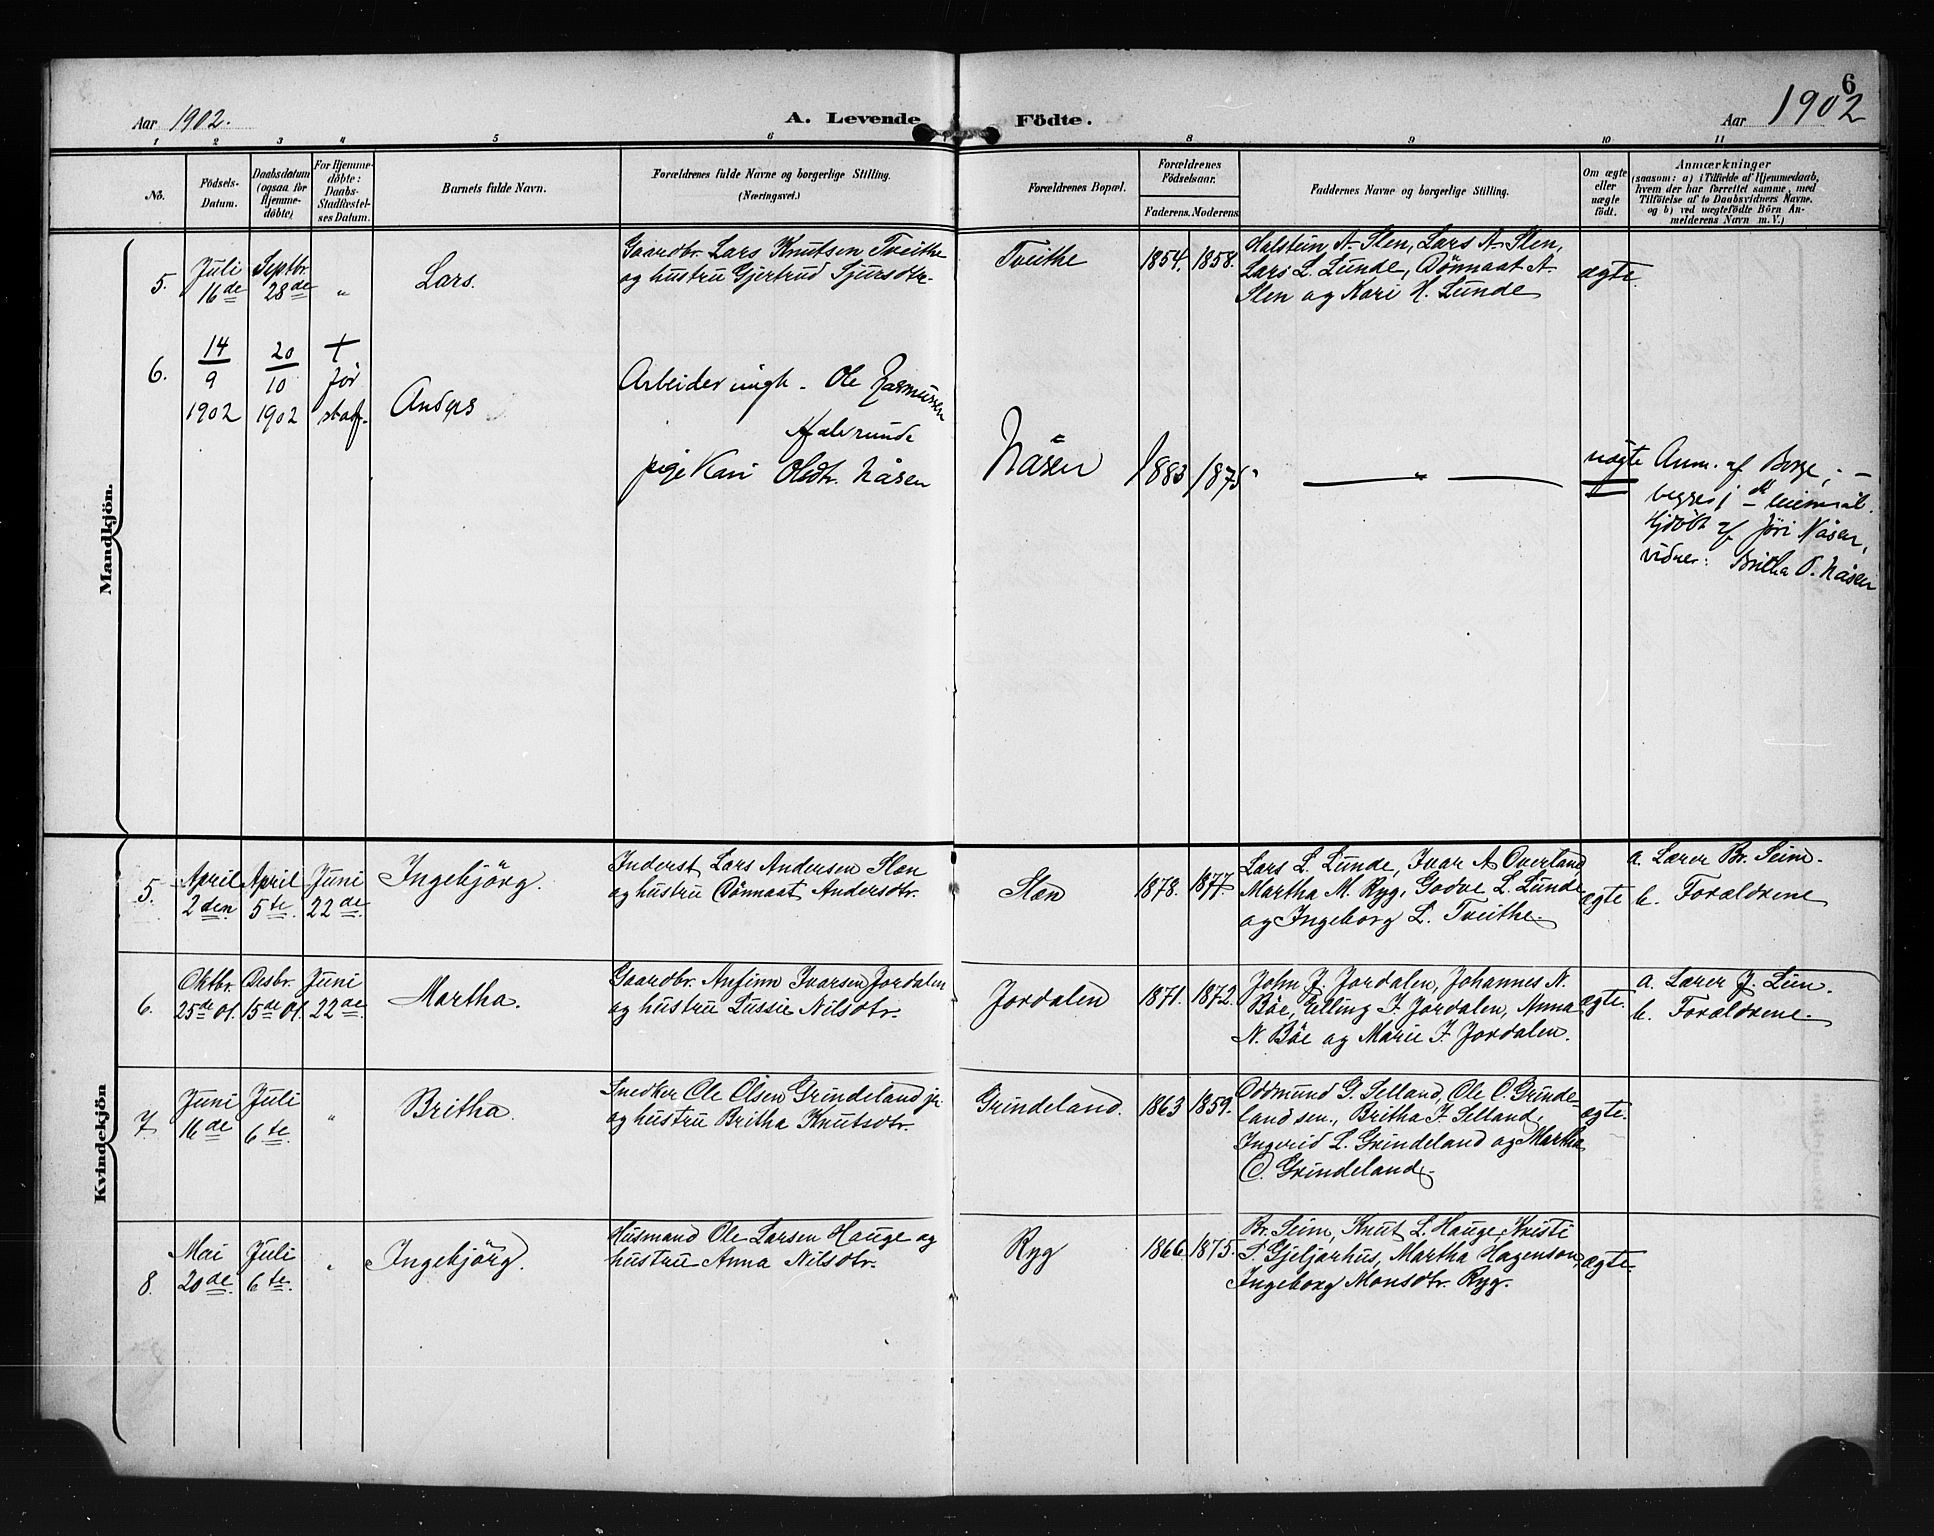 6
Aar 1902.
A. Levende Födte.
Aar 1902
1 2 3 4 5 6 8 9 10 11
No.
Födsels-Datum.
Daabsdatum (ogsaa for Hjemme-döbte)
For Hjemme-döbte: Daabs-Stadfæstel-ses Datum.
Barnets fulde Navn.
Forældrenes fulde Navne og borgerlige Stilling. (Næringsvei.)
Forældrenes Bopæl.
Forældrenes Födselsaar.
Faderens. Moderens.
Faddernes Navne og borgerlige Stilling.
Om ægte eller uægte födt.
Anmærkninger
(saasom: a) i Tilfælde af Hjemmedaab,
hvem der har forrettet samme, med
Tilföielse af to Daabsvidners Navne.
og b) ved uægtefödte Börn An-
melderens Navn m. V.)
Mandkjön.
5. Juli 16de Septbr. 28de " Lars.
Gaardbr. Lars Knutsen Tveithe
og hustru Gjertrud Sjursdtr.
Tveithe 1854. 1858.
Halstein A. Slen, Lars A. Slen,
Lars L. Lunde, Dönnaat A.
Slen og Kari H. Lunde
ægte.
6. 14/9 1902 20/10 1902 + før stadf. Anders
Arbeider ungk. Ole Rasmussen
pige Kari Olsdtr. Nåsen
Nåsen 1883 1875
uægte
Anm. af
af Nåsen,
vidner: Britha O. Nåsen
Kvindekjön
5. April 2den April 5te Juni 22de Ingebjörg.
Inderst Lars Andersen Slen
og hustru Dönnaat Andersdtr.
Slen 1878. 1877.
Lars L. Lunde, Ivar A. Overland,
Martha M. Ryg, Godve L. Lunde
og Ingeborg L. Tveithe.
ægte
a. Lærer Br. Seim.
b. Forældrene
6. Oktbr. 25de 01. Desbr. 15de 01. Juni 22de Martha.
Gaardbr. Anfinn Ivarsen Jordalen
og hustru Lussie Nilsdtr.
Jordalen 1871. 1872.
John J. Jordalen, Johannes N.
Böe, Elling I. Jordalen, Anna
N. Böe og Marie I. Jordalen.
ægte.
a. Lærer J. Lein.
b. Forældrene.
7. Juni 16de Juli 6te " Britha.
Snedker Ole Olsen Grindeland jr.
og hustru Britha Knutsdtr.
Grindeland. 1863 1859.
Oddmund G. Selland, Ole O. Grinde-
land sen., Britha I. Selland,
Ingerid L. Grindeland og Martha
O. Grindeland.
ægte.
8. Mai 20de Juli 6te " Ingebjörg.
Husmand Ole Larsen Hauge og
hustru Anna Nilsdtr.
Ryg 1866. 1875.
Br. Seim, Knut L. Hauge, Kristi
P. Gjeljarhus, Martha Hagenson,
Ingeborg Monsdtr. Ryg.
ægte.